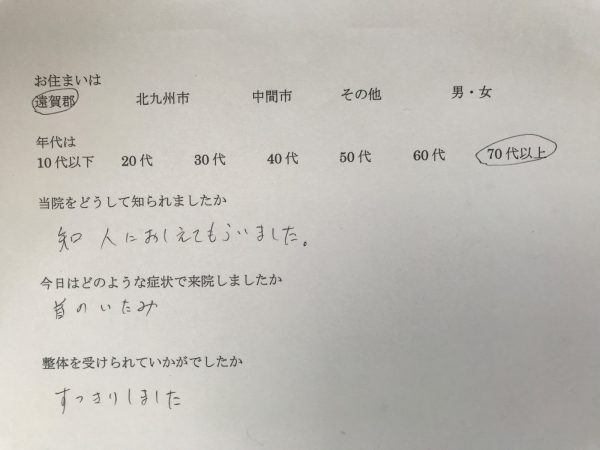 お住まいは
遠賀郡 北九州市 中間市 その他 男・女
年代は
10代以下 20代 30代 40代 50代 60代 70代以上
当院をどうして知られましたか
知人におしえてもらいました。
今日はどのような症状で来院しましたか
首のいたみ
整体を受けられていかがでしたか
すっきりしました